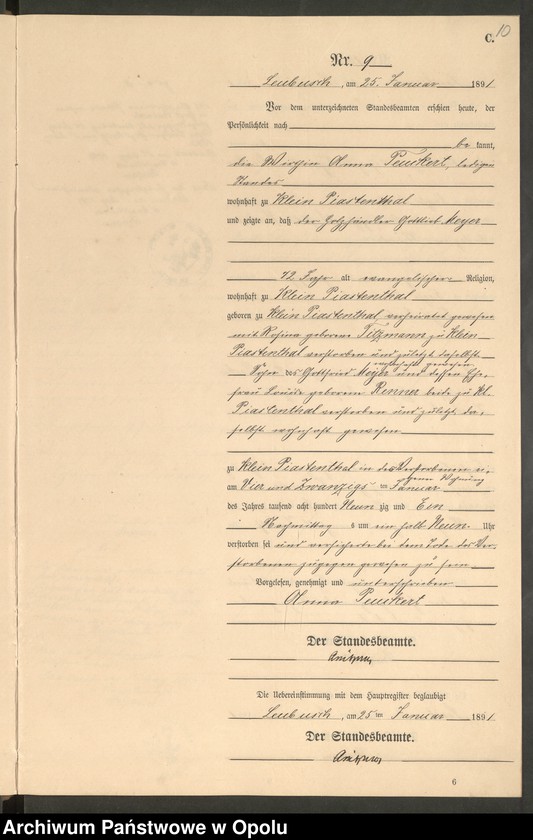 C. 10
Nr. 9
Leubusch, am 25. Januar 1891
Vor dem unterzeichneten Standesbeamten erschien heute, der
Persönlichkeit nach
be kannt,
die Anna Peuckert, ledigen
Standes
wohnhaft zu Klein Piastenthal
und zeigte an, daß der Holzhändler Gottlieb Meyer
72 Jahr alt evangelischer Religion,
wohnhaft zu Klein Piastenthal
geboren zu Klein Piastenthal verheiratet gewesen
mit Rosina geborene Titzmann zu Klein
Piastenthal verstorben und zuletzt daselbst
wohnhaft gewesen
Sohn des Gottfried Meyer und dessen Ehe-
frau geborene Renner beide zu Kl.
Piastenthal verstorben und zuletzt da-
selbst wohnhaft gewesen
zu Klein Piastenthal in des Verstorbenen ei-
gener Wohnung
am Vier und Zwanzigs ten Januar
des Jahres tausend acht hundert Neun zig und Ein
Nachmittag s um ein halb Neun Uhr
verstorben sei und versicherte bei dem Tode des Ver-
storbenen zugegen gewesen zu sein
Vorgelesen, genehmigt und unterschrieben
Anna Peuckert
Der Standesbeamte.
Die Uebereinstimmung mit dem Hauptregister beglaubigt
Leubusch, am 25 ten Januar 1891
Der Standesbeamte.
6
Archiwum Państwowe w Opolu